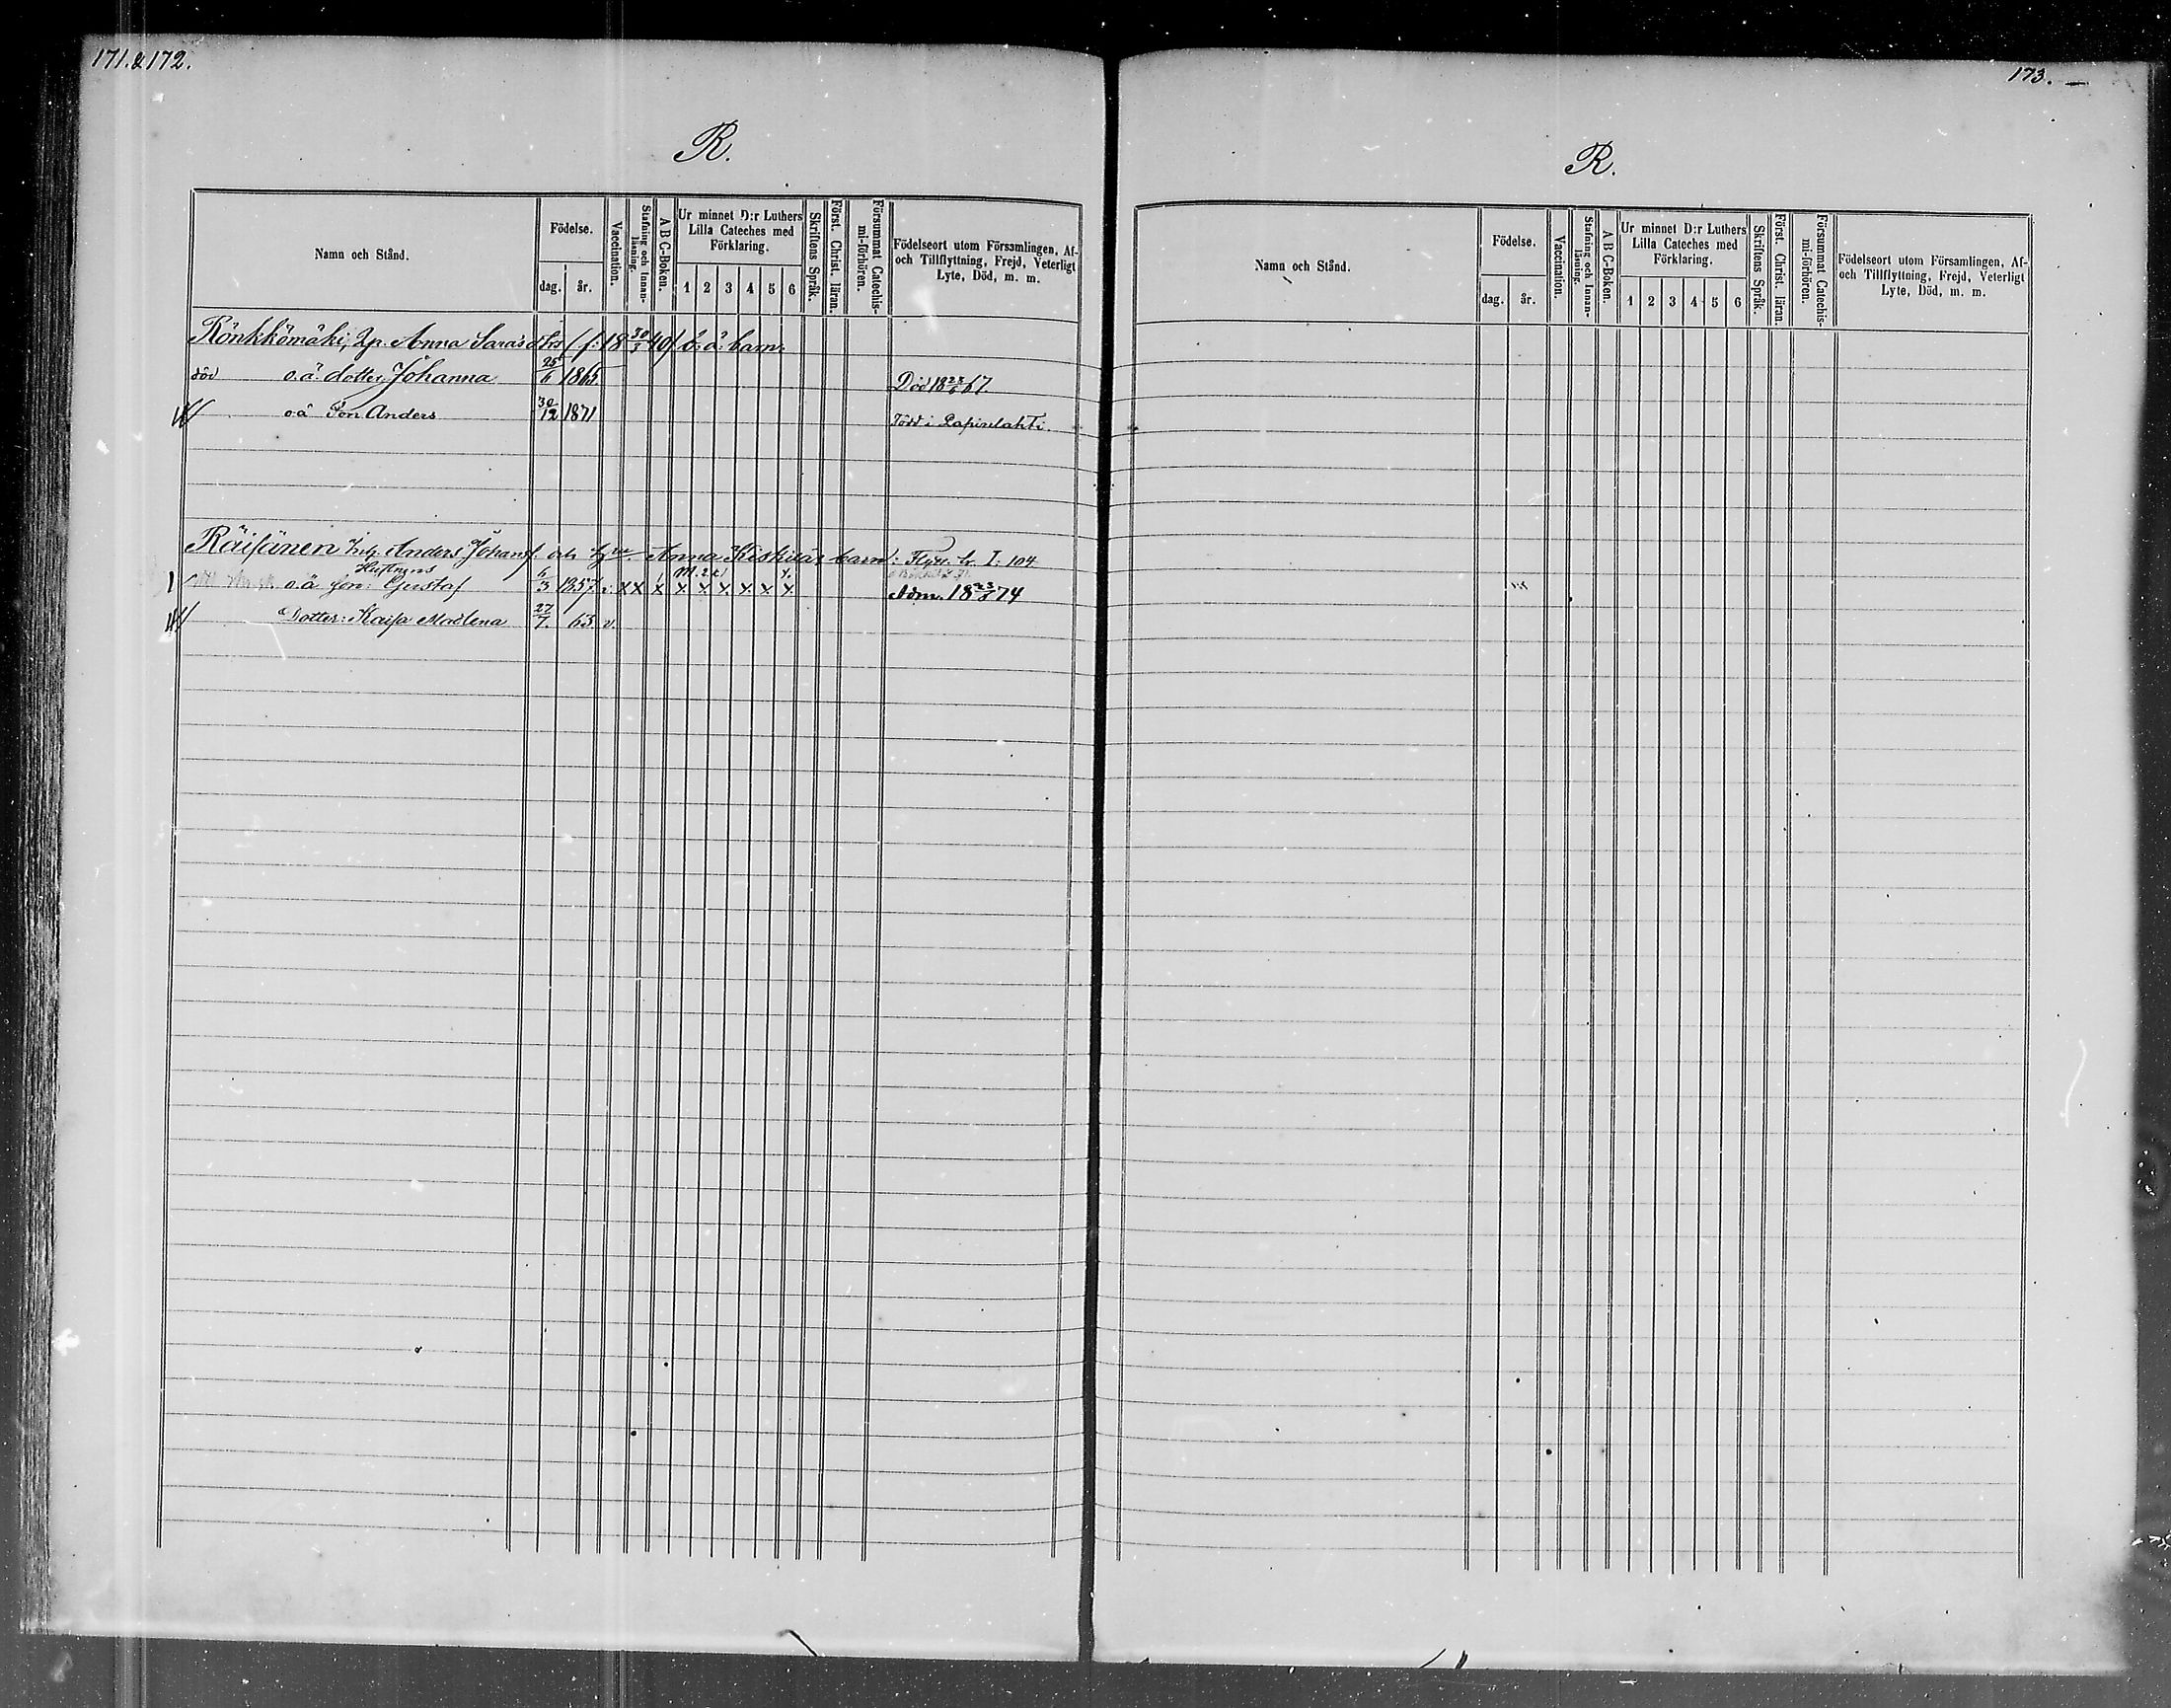 171.&172.
R.
Namn och Stånd.
Födelse.
dag. år.
Vaccination.
Stafning och Innanläsning.
A B C-Boken.
Ur minnet D:r Luthers Lilla Cateches med Förklaring.
1 2 3 4 5 6
Skriftens Språk.
Först. Christ. läran.
Försummat Catechismi-förhören.
Födelseort utom Församlingen, Af- och Tillflyttning, Frejd, Veterligt Lyte, Död, m. m.
Rönkkömäki, Anna Sarasdtrs (f. 18 30/3 40) o. ä. barn:
död o.ä. dotter, Johanna 25/6 1865. Död 18 67.
o.ä Son Anders 30/12 1871 Född i Lapinlahti.
Räisänen Anders Johansf. och Anna barn: I: 104
Hustruns
o.ä son: Gustaf 6/3 1857. v. x x x x x x x x x Adm. 18 74
Dotter: Kaisa Madlena 27/7. 63. v.
173.
R.
Namn och Stånd.
Födelse.
dag. år.
Vaccination.
Stafning och Innanläsning.
A B C-Boken.
Ur minnet D:r Luthers Lilla Cateches med Förklaring.
1 2 3 4 5 6
Skriftens Språk.
Först. Christ. läran.
Försummat Catechismi-förhören.
Födelseort utom Församlingen, Af- och Tillflyttning, Frejd, Veterligt Lyte, Död, m. m.